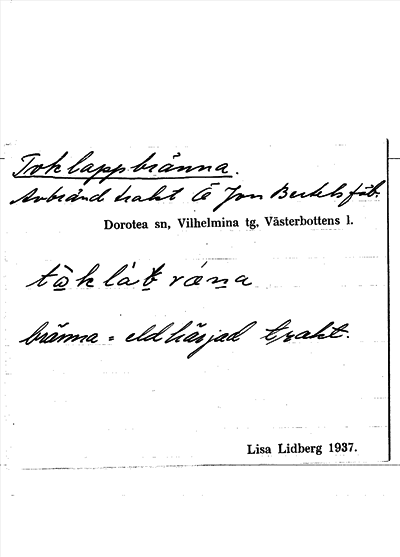 Toklappbränna.
Avbränd trakt Ö Jon Bertels fäb.
Dorotea sn, Vilhelmina tg, Västerbottens l.
bränna = eldhärjad trakt.
Lisa Lidberg 1937.